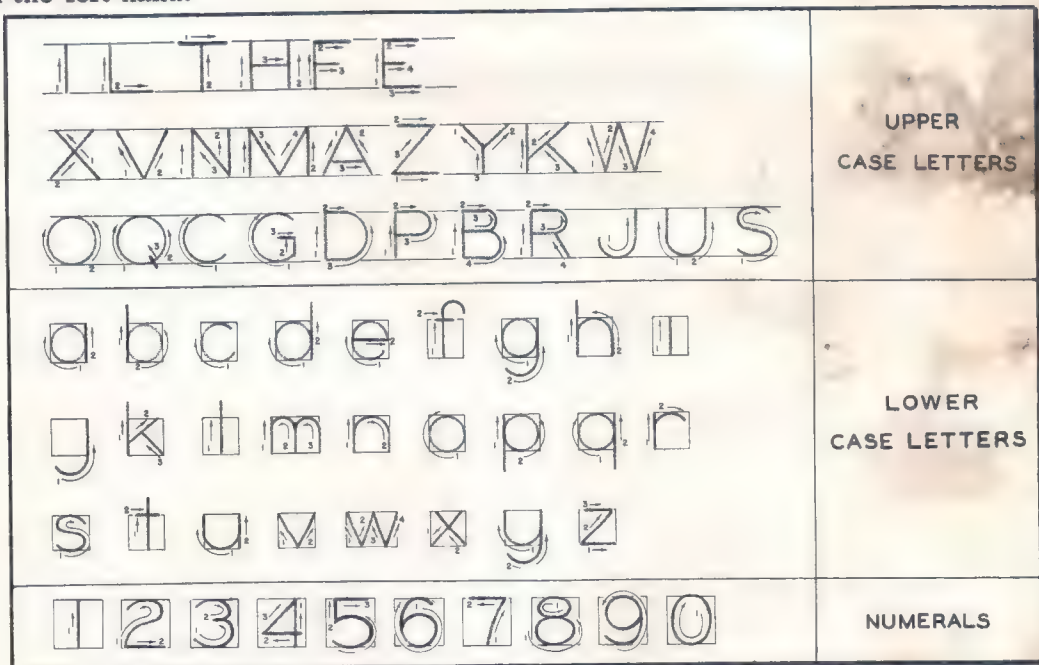 I L T H F E
X V N M A Z Y K W
O Q C G D P B R J U S
UPPER
CASE LETTERS
a b c d e f g h i
j k l m n o p q r
s t u v w x y z
LOWER
CASE LETTERS
1 2 3 4 5 6 7 8 9 0
NUMERALS